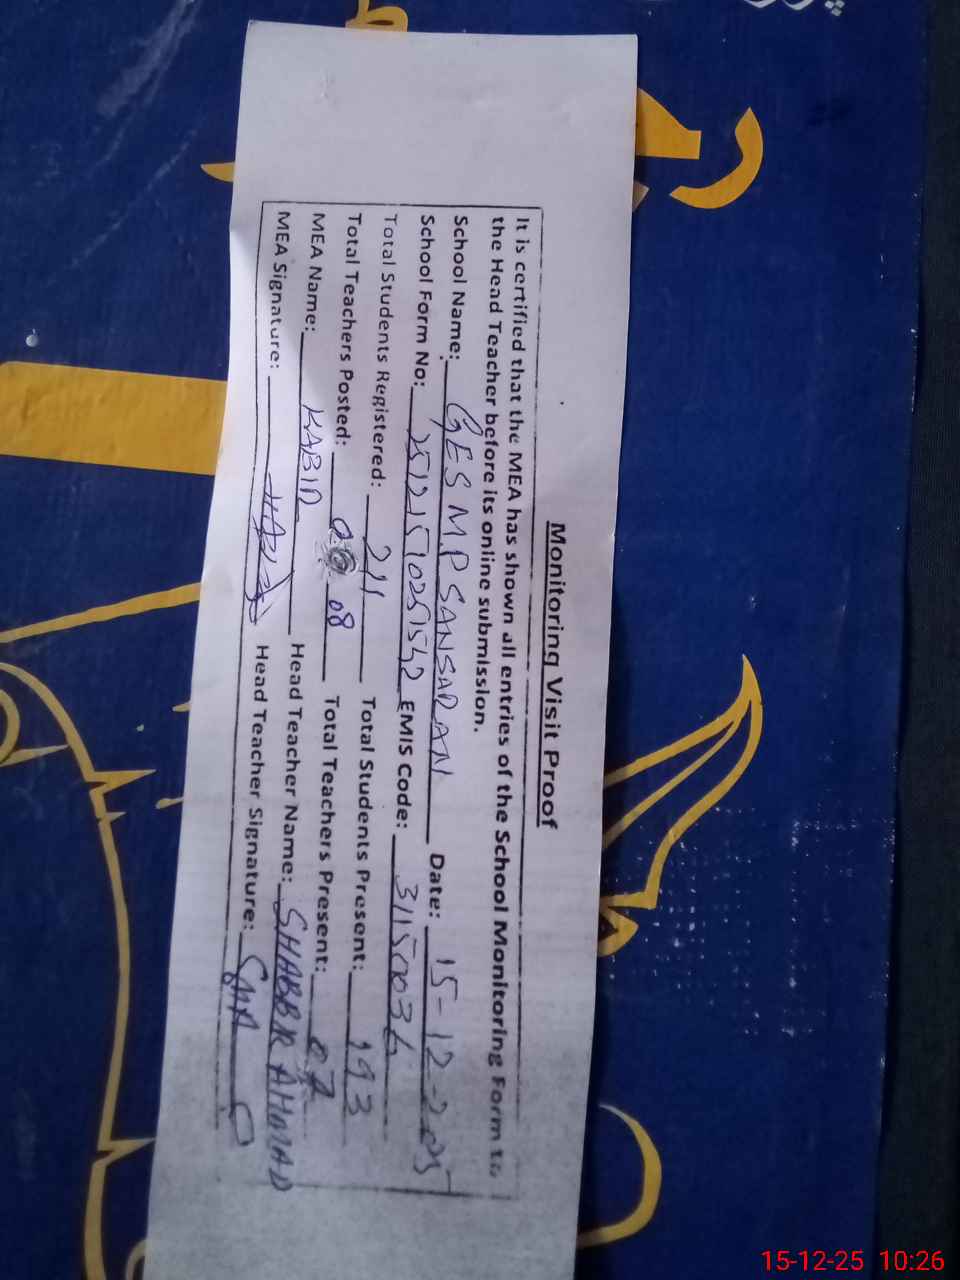 Monitoring Visit Proof
It is certified that the MEA has shown all entries of the School Monitoring Form to
the Head Teacher before its online submission.
School Name: GES MP SANSARAN Date: 15-12-2025
School Form No: 25121510251542 EMIS Code:
Total Students Registered: 211 Total Students Present: 193
Total Teachers Posted: 08 Total Teachers Present: 07
MEA Name: KABIR Head Teacher Name: SHABBIR AHMAD
MEA Signature: Head Teacher Signature:
15-12-25 10:26